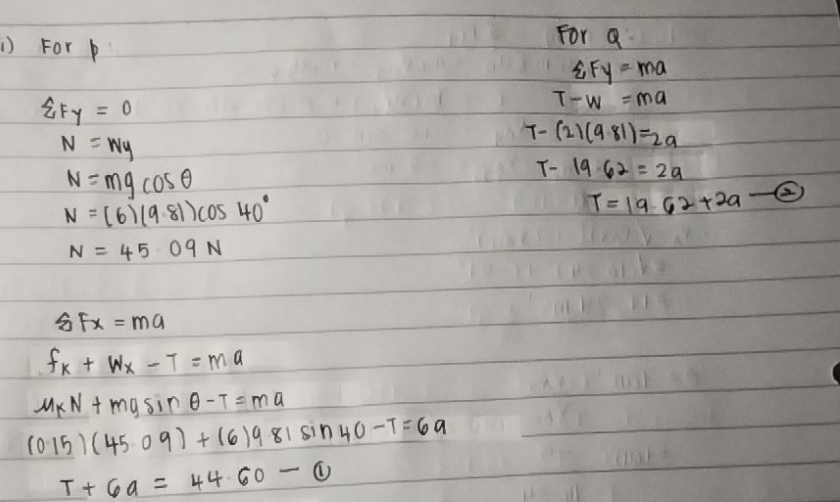 i) For p:
ΣFy = 0
N = Wy
N = mg cos θ
N = (6)(9.81)cos 40°
N = 45.09 N
ΣFx = ma
fk + Wx - T = ma
μkN + mg sin θ - T = ma
(0.15)(45.09) + (6)9.81 sin 40 - T = 6a
T + 6a = 44.60 — ①
For Q:
ΣFy = ma
T - W = ma
T - (2)(9.81) = 2a
T - 19.62 = 2a
T = 19.62 + 2a — ②